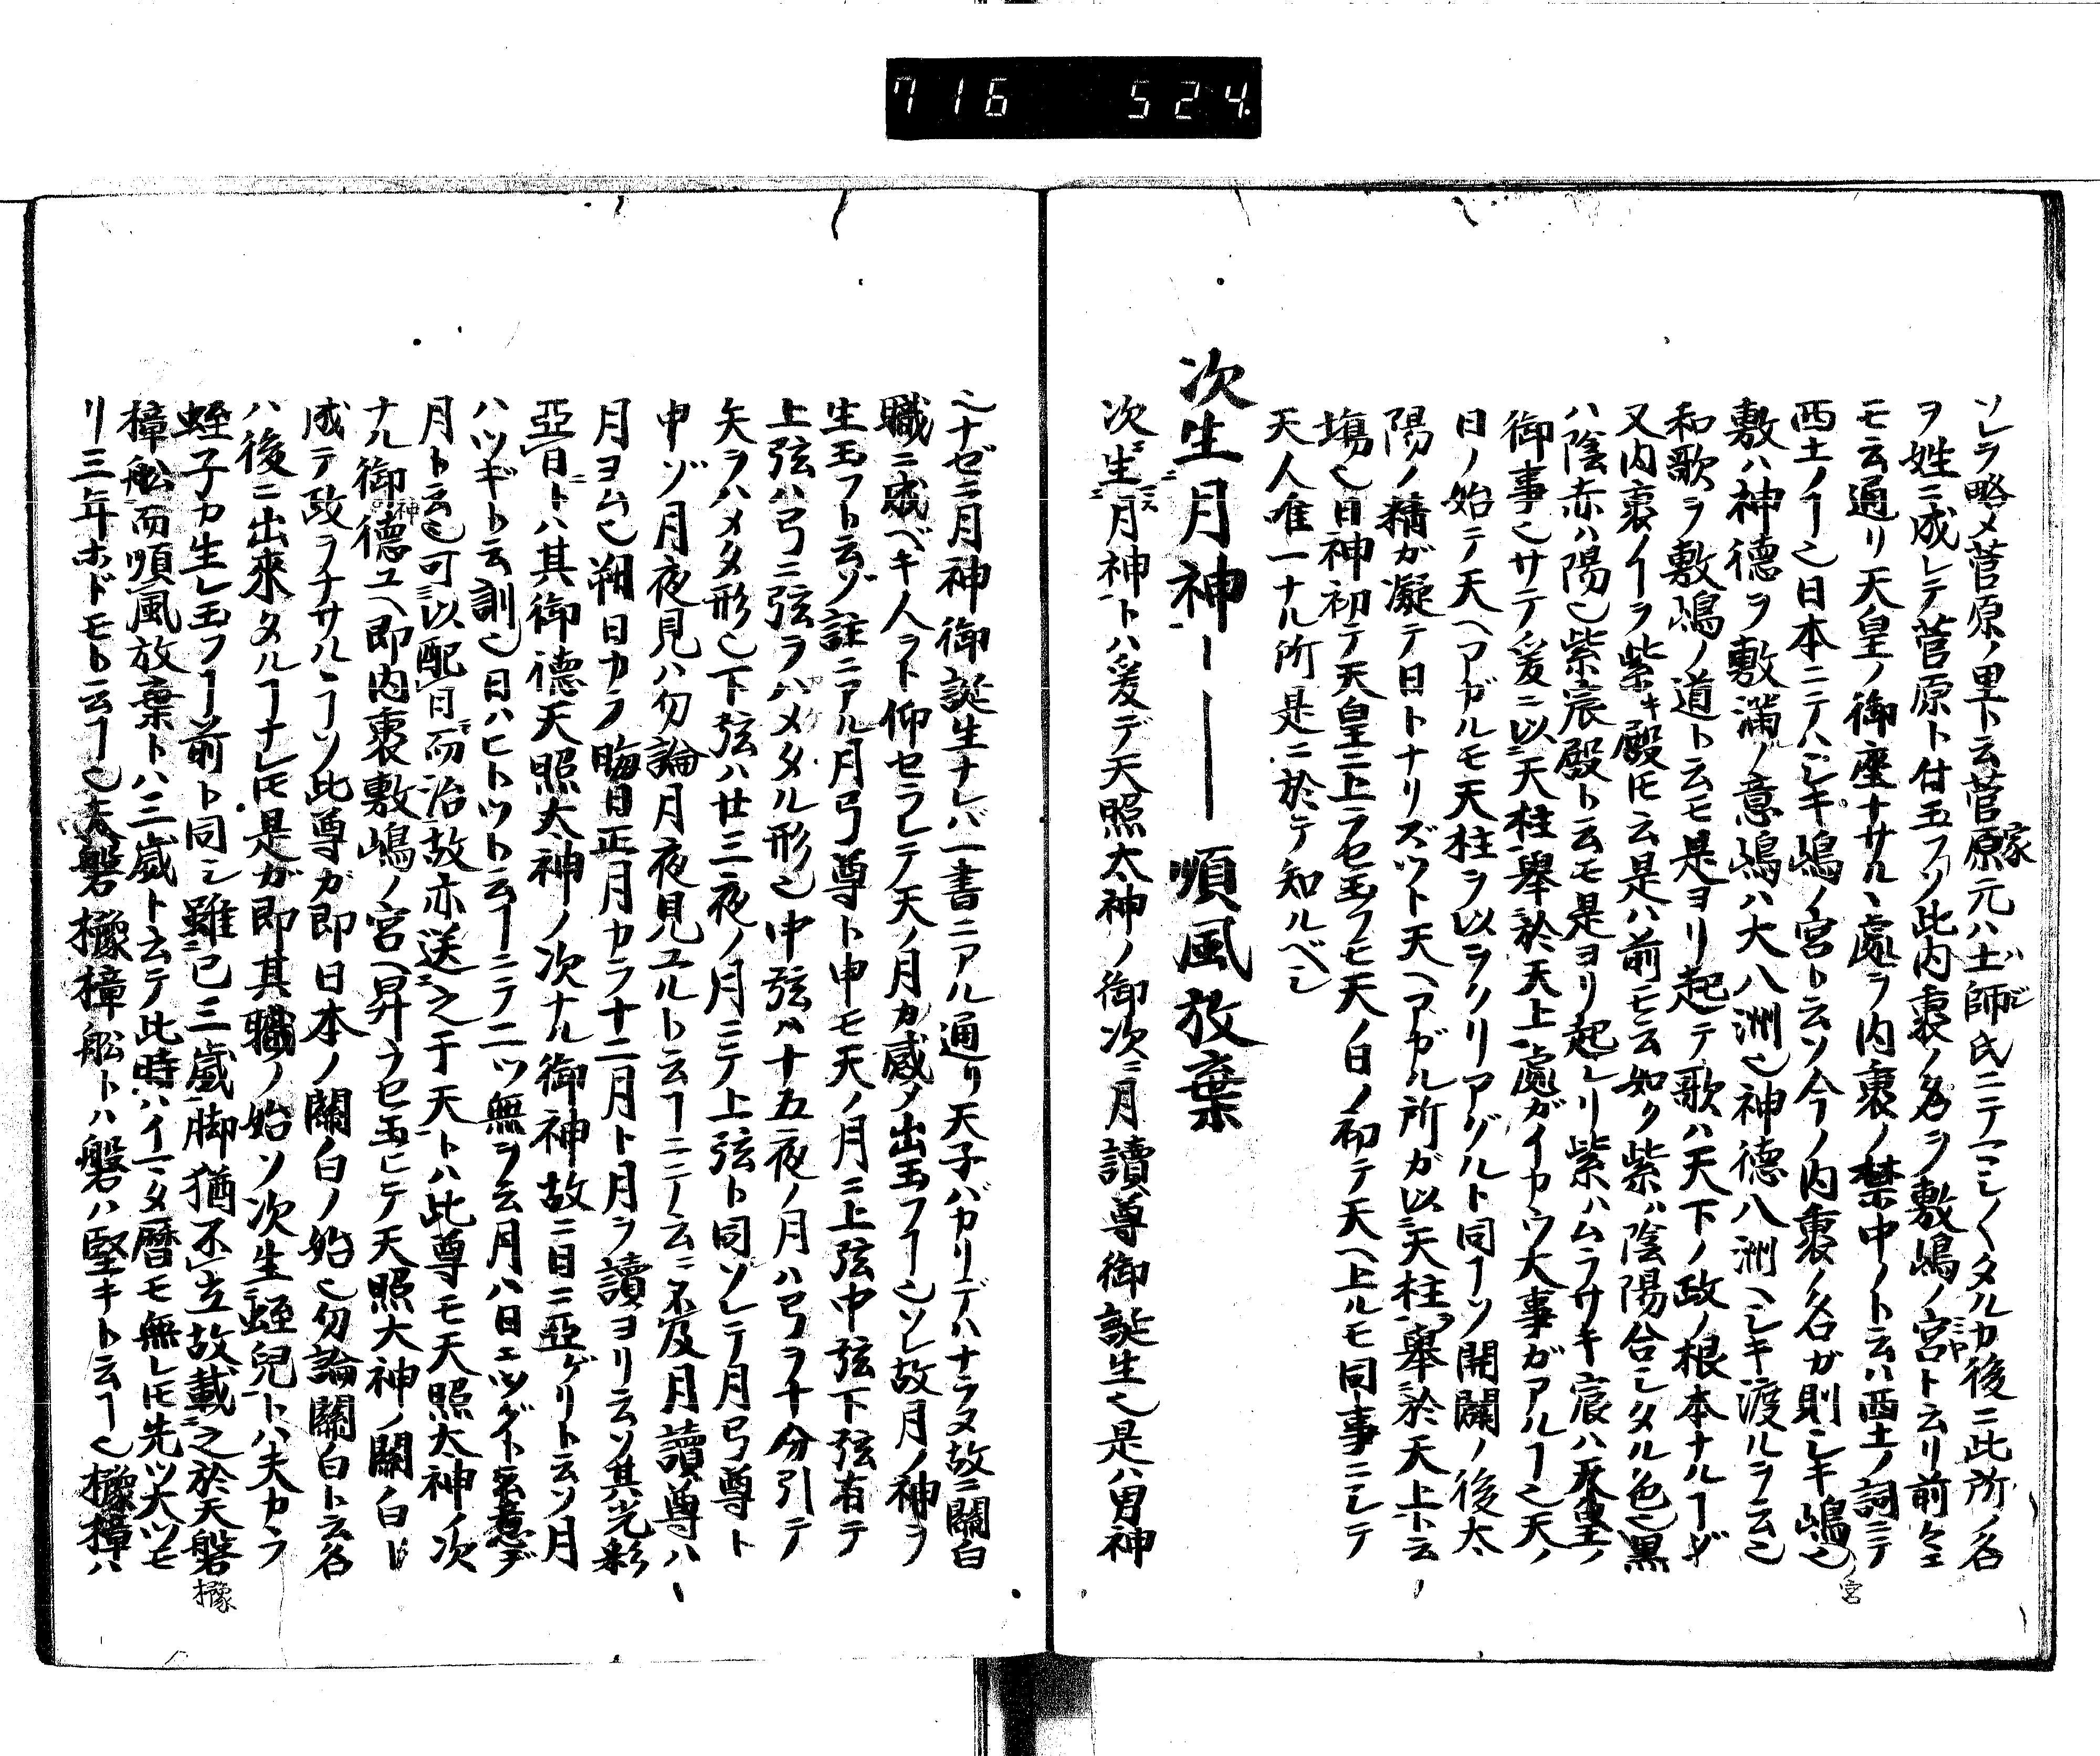 716 524
ソレヲ略メ菅原ノ里ト云菅原家元ハ土師氏ニテマシ〳〵タルカ後ニ此所ノ名
ヲ姓ニ成レテ菅原ト付玉フソ此内裏ノ名ヲ敷嶋ノ宮ト云リ前々エ
モ云通リ天皇ノ御座ナサルヽ處ヲ内裏ノ禁中ノト云ハ西土ノ詞ニテ
西土ノヿ也日本ニテハシキ嶋ノ宮ト云ソ今ノ内裏ノ名ガ則シキ嶋ノ宮也
敷ハ神徳ヲ敷満ノ意嶋ハ大八洲也神徳八洲ヘシキ渡ルヲ云也
和歌ヲ敷嶋ノ道ト云モ是ヨリ起テ歌ハ天下ノ政ノ根本ナルヿゾ
又内裏ノヿヲ紫キ殿ト云是ハ前モ云如ク紫ハ陰陽合シタル色也黒
ハ陰赤ハ陽也紫宸殿ト云モ是ヨリ起レリ紫ハムラサキ宸ハ天皇ノ
御事也サテ爰ニ以天柱擧於天上處ガイカウ大事ガアルヿ也天ノ
日ノ始テ天ヘアガルモ天柱ヲ以ヲクリアゲルト同ヿソ開闢ノ後太
陽ノ精ガ凝テ日トナリズツト天ヘアガル所ガ以天柱擧於天上ト云
塲也日神初テ天皇ニ上ラセ玉フモ天ノ日ノ初テ天ヘ上ルモ同事ニシテ
天人唯一ナル所是ニ於テ知ルベシ
次生月神ーーー順風放棄
次生月神トハ爰デ天照太神ノ御次ニ月讀尊御誕生也是ハ男神
也ナゼニ月神御誕生ナレバ一書ニアル通リ天子バカリデハナラヌ故ニ關白
職ニ成ベキ人ヲト仰セラレテ天ノ月カ感メ出玉フヿ也ソレ故月ノ神ヲ
生玉フト云ゾ註ニアル月弓尊ト申モ天ノ月ニ上弦中弦下弦有テ
上弦ハ弓ニ弦ヲハメタル形也中弦ハ十五夜ノ月ハ弓ヲ十分引テ
矢ヲハメタ形也下弦ハ廿三夜ノ月ニテ上弦ト同ソレテ月弓尊ト
申ゾ月夜見ハ勿論月夜見ユルト云ヿニノ云ニ不及月讀尊ハ
月ヨム也朔日カラ晦日正月カラ十二月ト月ヲ讀ヨリ云ソ其光彩
亞日トハ其御徳天照太神ノ次ナル御神故ニ日ニ亞ゲリト云ソ月
ハツギト云訓也日ハヒトツト云ヿニテ二ツ無ヲ云月ハ日エツグト云意デ
月ト云也可以配日而治故亦送之于天トハ此尊モ天照大神ノ次
ナル御神徳ユヘ即内裏敷嶋ノ宮ヘ昇ラセ玉ヒテ天照大神ノ關白ト
成テ政ヲナサルヽヿソ此尊ガ即日本ノ關白ノ始也勿論關白ト云名
ハ後ニ出來タルヿナレ𪜈是ガ即其職ノ始ソ次生蛭兒トハ夫カラ
蛭子カ生レ玉フヿ前ト同シ雖已三歳脚猶不立故載之於天磐櫲
樟舩而順風放棄トハ三歳ト云テ此時ハイマタ暦モ無レ𪜈先ツ大ツモ
リ三年ホドモト云ヿ也天磐櫲樟舩トハ磐ハ堅キト云ヿ也櫲樟ハ